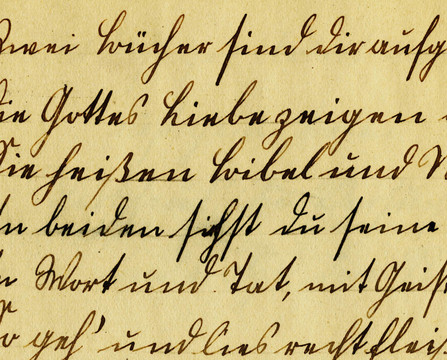 Zwei Bücher sind dir aufg
die Gottes Liebe zeigen
Sie heißen Bibel und N
In beiden siehst du seine
In Wort und Tat, mit Geist
So geh' und lies recht fleiß